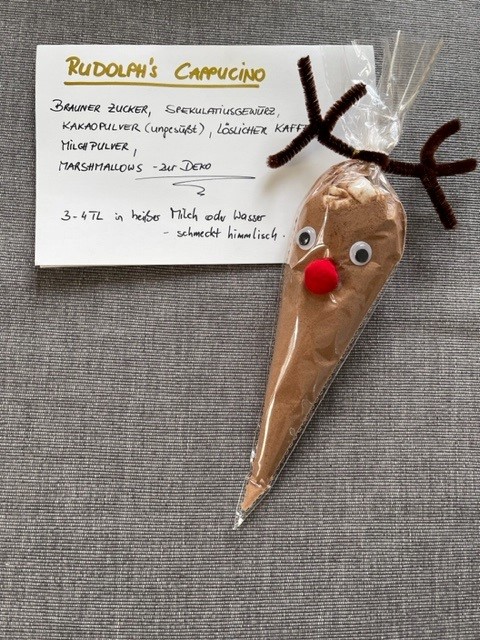 RUDOLPH's CAPPUCINO
BRAUNER ZUCKER, SPEKULATIUSGEWÜRZ,
KAKAOPULVER (ungesüßt), LÖSLICHER KAFF
MILCHPULVER,
MARSHMALLOWS - zur DEKO
3-4 TL in heißer Milch oder Wasser
- schmeckt himmlisch.